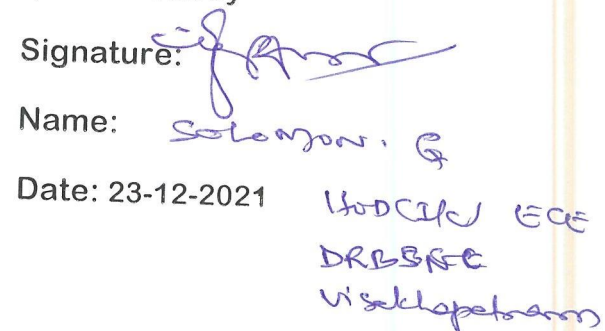 Signature:
Name: Solomon. G
Date: 23-12-2021
HOD(I/c) ECE
Visakhapatnam